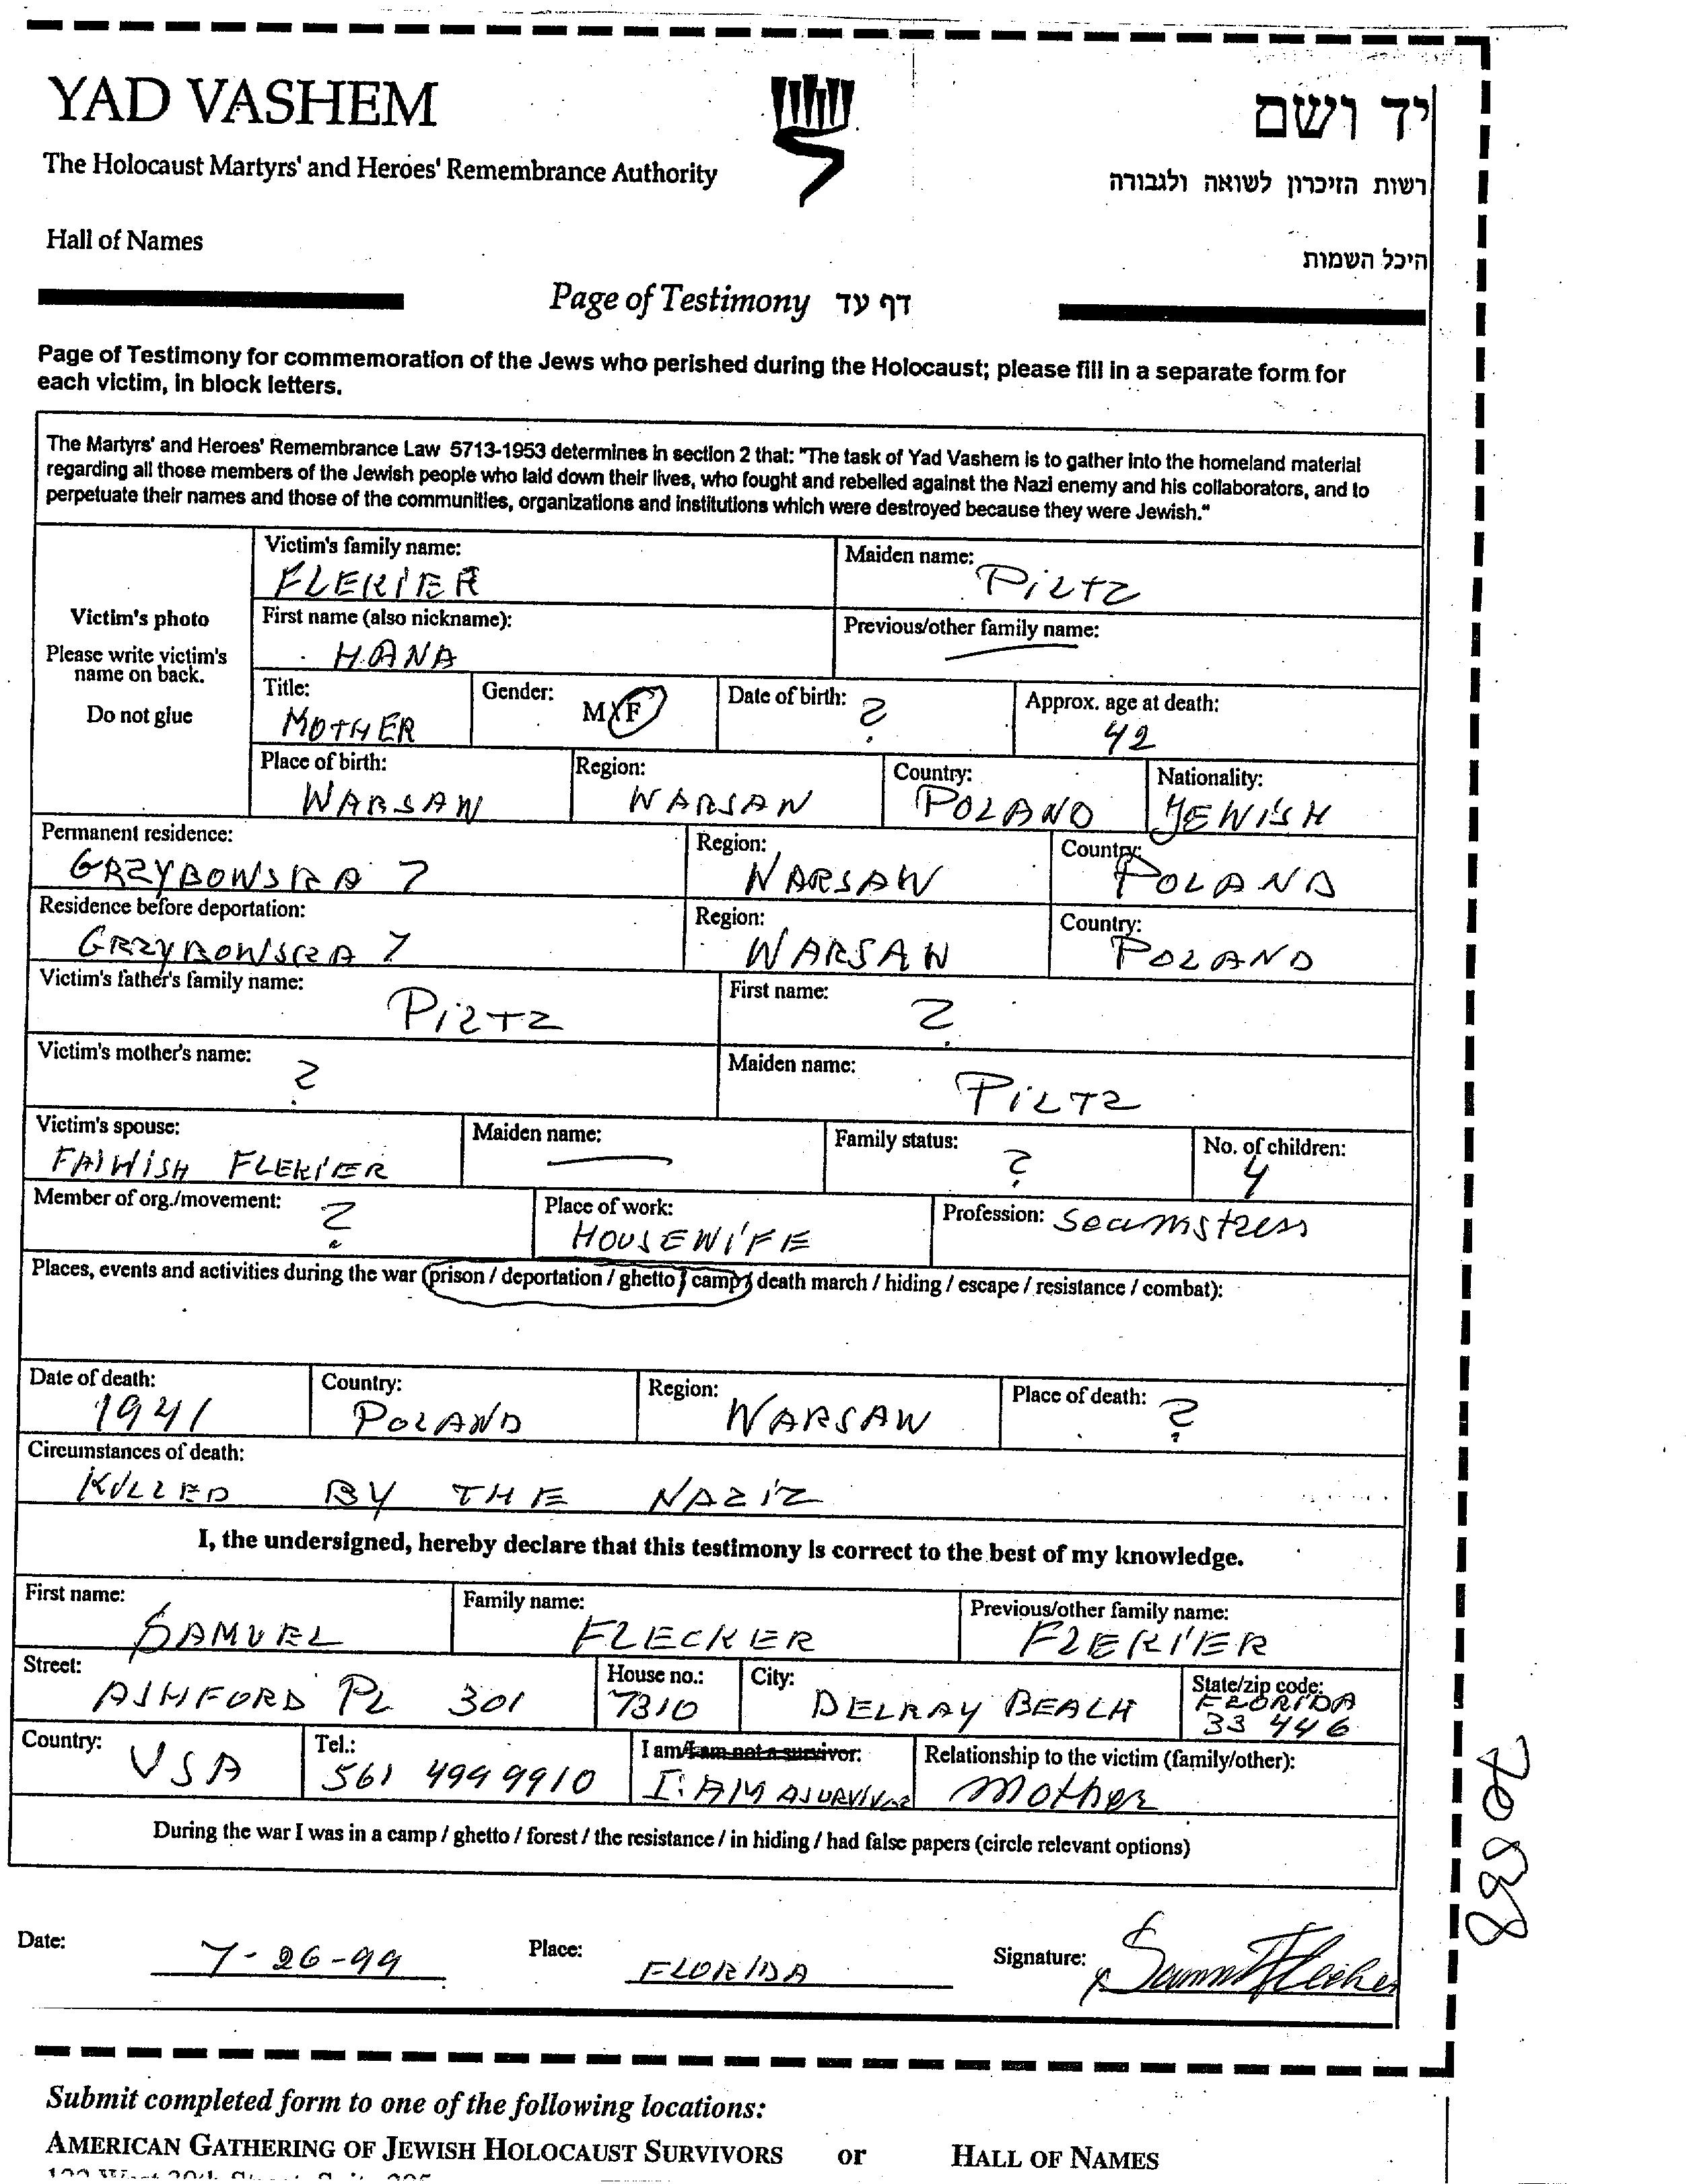 YAD VASHEM
יד ושם
The Holocaust Martyrs' and Heroes' Remembrance Authority
רשות הזיכרון לשואה ולגבורה
Hall of Names
היכל השמות
Page of Testimony דף עד
Page of Testimony for commemoration of the Jews who perished during the Holocaust; please fill in a separate form for
each victim, in block letters.
The Martyrs' and Heroes' Remembrance Law 5713-1953 determines in section 2 that: "The task of Yad Vashem is to gather into the homeland material
regarding all those members of the Jewish people who laid down their lives, who fought and rebelled against the Nazi enemy and his collaborators, and to
perpetuate their names and those of the communities, organizations and institutions which were destroyed because they were Jewish."
Victim's photo
Please write victim's
name on back.
Do not glue
Victim's family name:
FLEKIER
Maiden name:
PILTZ
First name (also nickname):
HANA
Previous/other family name:
Title:
MOTHER
Gender:
M F
Date of birth:
?
Approx. age at death:
42
Place of birth:
WARSAW
Region:
WARSAW
Country:
POLAND
Nationality:
JEWISH
Permanent residence:
GRZYBOWSKA 7
Region:
WARSAW
Country:
POLAND
Residence before deportation:
GRZYBOWSKA 7
Region:
WARSAW
Country:
POLAND
Victim's father's family name:
PILTZ
First name:
?
Victim's mother's name:
?
Maiden name:
PILTZ
Victim's spouse:
FAIWISH FLEKIER
Maiden name:
Family status:
?
No. of children:
4
Member of org./movement:
?
Place of work:
HOUSEWIFE
Profession: Seamstress
Places, events and activities during the war (prison / deportation / ghetto / camp / death march / hiding / escape / resistance / combat):
Date of death:
1941
Country:
POLAND
Region:
WARSAW
Place of death: ?
Circumstances of death:
KILLED BY THE NAZIZ
I, the undersigned, hereby declare that this testimony is correct to the best of my knowledge.
First name:
SAMUEL
Family name:
FLECKER
Previous/other family name:
FLEKIER
Street:
ASHFORD PL 301
House no.:
7310
City:
DELRAY BEACH
State/zip code:
FLORIDA
33 446
Country:
USA
Tel.:
561 499 9910
I am/I am not a survivor:
I. AM A SURVIVOR
Relationship to the victim (family/other):
Mother
During the war I was in a camp / ghetto / forest / the resistance / in hiding / had false papers (circle relevant options)
Date: 7-26-99
Place: FLORIDA
Signature: X Samuel Flecker
Submit completed form to one of the following locations:
AMERICAN GATHERING OF JEWISH HOLOCAUST SURVIVORS or HALL OF NAMES